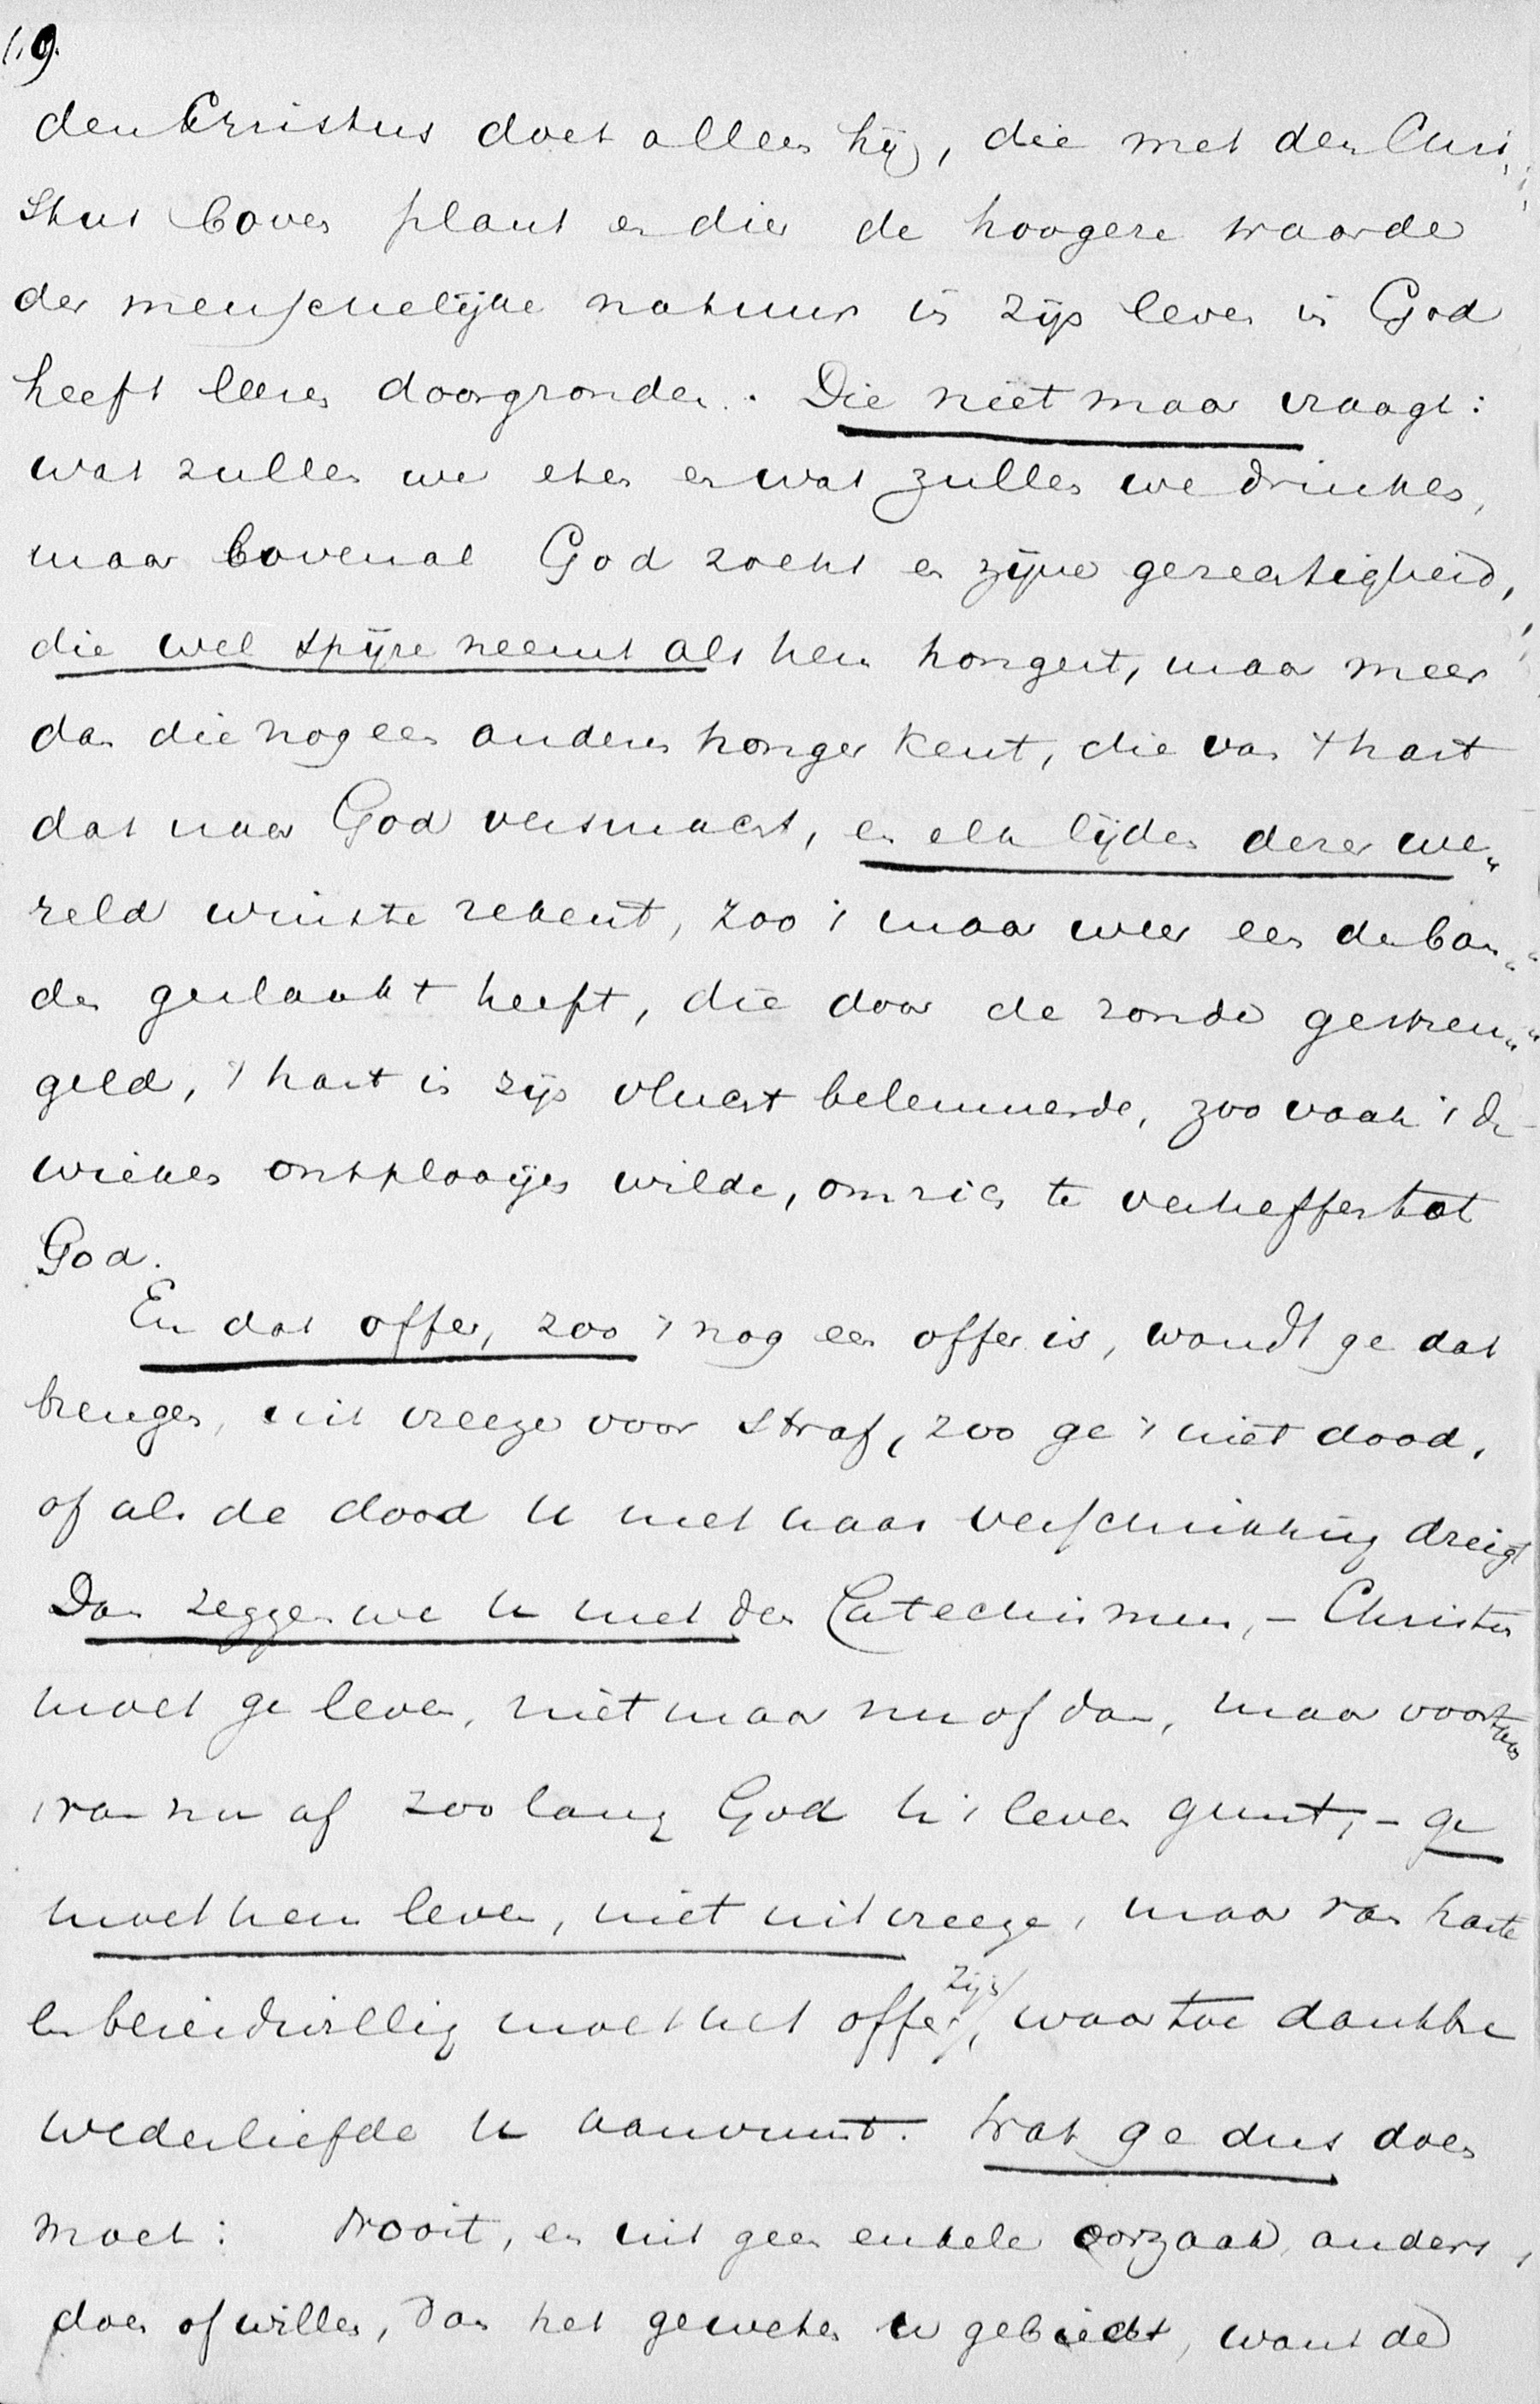 19.
den Christus doet alleen hij, die met den Chri,,
stus boven plant en dier de hoogere waarde
der menschelijke natuur in zijn leven in God
heeft leeren doorgronden. Die niet maar vraagt:
wat zullen we eten en wat zullen we drinken,
maar bovenal God zoekt en zijne gerechtigheid,
die wel spijze neemt als hem hongert, maar meer
dan die nog een anderen honger kent, die van 't hart
dat naar God versmacht, en elk lijden dezer we„
reld winste rekent, zoo 't maar weer een der ban„
den geslaakt heeft, die door de zonde gestren„
geld, 't hart in zijn vlucht belemmerde, zoo vaak 't de
wieken ontplooijen wilde, om zich te verheffen tot
God.
En dat offer, zoo 't nog een offer is, woudt ge dat
brengen, uit vreeze voor straf, zoo ge 't niet dood,
of als de dood u met haar verschrikking dreigt
Dan zeggen we u met den Catechismus, - Christus
moet ge leven, niet maar nu of dan, maar voortaan
van nu af zoo lang God u 't leven gunt, - ge
moet hem leven, niet uit vreeze, maar van harte
en bereidwillig moet het offer zijn, waartoe dankbre
wederliefde u aanvuurt. Wat ge dus doen
moet: nooit, en uit geen enkele oorzaak, anders,
doen of willen, dan het geweten u gebiedt, want de